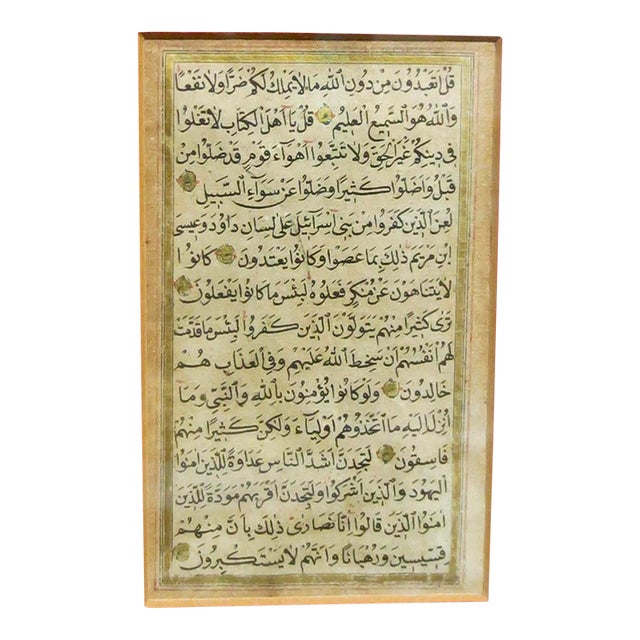 قُلْ اَتَعْبُدُونَ مِنْ دُونِ اللّٰهِ مَا لَا يَمْلِكُ لَكُمْ ضَرًّا وَلَا نَفْعًا
وَاللّٰهُ هُوَ السَّمِيعُ الْعَلِيمُ قُلْ يَا اَهْلَ الْكِتَابِ لَا تَغْلُوا
فِي دِينِكُمْ غَيْرَ الْحَقِّ وَلَا تَتَّبِعُوا اَهْوَاءَ قَوْمٍ قَدْ ضَلُّوا مِنْ
قَبْلُ وَاَضَلُّوا كَثِيرًا وَضَلُّوا عَنْ سَوَاءِ السَّبِيلِ
لُعِنَ الَّذِينَ كَفَرُوا مِنْ بَنِي اِسْرَائِيلَ عَلَى لِسَانِ دَاوُدَ وَعِيسَى
ابْنِ مَرْيَمَ ذٰلِكَ بِمَا عَصَوْا وَكَانُوا يَعْتَدُونَ كَانُوا
لَا يَتَنَاهَوْنَ عَنْ مُنْكَرٍ فَعَلُوهُ لَبِئْسَ مَا كَانُوا يَفْعَلُونَ
تَرٰى كَثِيرًا مِنْهُمْ يَتَوَلَّوْنَ الَّذِينَ كَفَرُوا لَبِئْسَ مَا قَدَّمَتْ
لَهُمْ اَنْفُسُهُمْ اَنْ سَخِطَ اللّٰهُ عَلَيْهِمْ وَفِي الْعَذَابِ هُمْ
خَالِدُونَ وَلَوْ كَانُوا يُؤْمِنُونَ بِاللّٰهِ وَالنَّبِيِّ وَمَا
اُنْزِلَ اِلَيْهِ مَا اتَّخَذُوهُمْ اَوْلِيَاءَ وَلٰكِنَّ كَثِيرًا مِنْهُمْ
فَاسِقُونَ لَتَجِدَنَّ اَشَدَّ النَّاسِ عَدَاوَةً لِلَّذِينَ اٰمَنُوا
الْيَهُودَ وَالَّذِينَ اَشْرَكُوا وَلَتَجِدَنَّ اَقْرَبَهُمْ مَوَدَّةً لِلَّذِينَ
اٰمَنُوا الَّذِينَ قَالُوا اِنَّا نَصَارٰى ذٰلِكَ بِاَنَّ مِنْهُمْ
قِسِّيسِينَ وَرُهْبَانًا وَاَنَّهُمْ لَا يَسْتَكْبِرُونَ